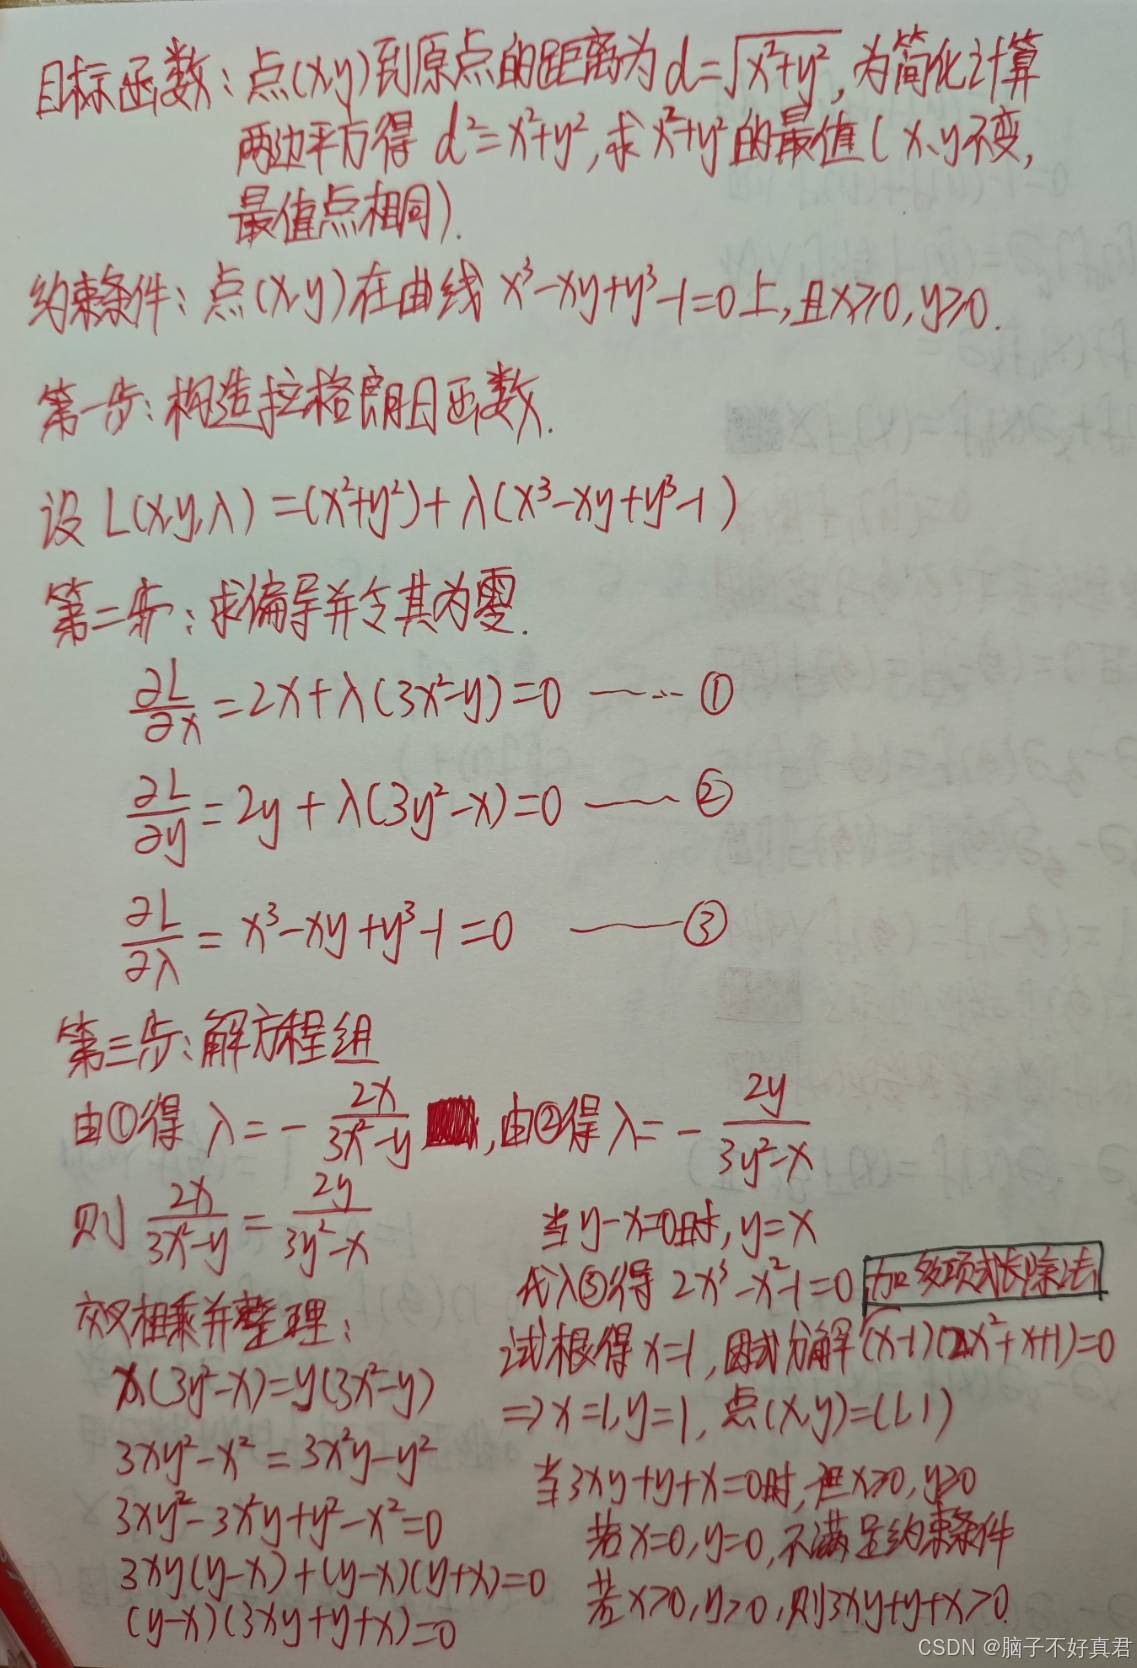 目标函数：点(x,y)到原点的距离为d=√(x²+y²)，为简化计算
两边平方得 d²=x²+y²，求x²+y²的最值(x、y不变，
最值点相同).
约束条件：点(x,y)在曲线 x³-xy+y³-1=0上，且x≥0，y≥0.
第一步：构造拉格朗日函数.
设 L(x,y,λ)=(x²+y²)+λ(x³-xy+y³-1)
第二步：求偏导并令其为零.
∂L/∂x=2x+λ(3x²-y)=0 —-·- ①
∂L/∂y=2y+λ(3y²-x)=0 —— ②
∂L/∂λ=x³-xy+y³-1=0 ——③
第三步：解方程组
由①得 λ=-2x/(3x²-y)，由②得λ=-2y/(3y²-x)
则 2x/(3x²-y)=2y/(3y²-x)
交叉相乘并整理：
x(3y²-x)=y(3x²-y)
3xy²-x²=3x²y-y²
3xy²-3x²y+y²-x²=0
3xy(y-x)+(y-x)(y+x)=0
(y-x)(3xy+y+x)=0
当y-x=0时，y=x
代入③得 2x³-x²-1=0 如多项式长除法
试根得x=1，因式分解(x-1)(2x²+x+1)=0
⇒x=1,y=1，点(x,y)=(1,1)
当3xy+y+x=0时，但x≥0,y≥0
若x=0,y=0，不满足约束条件
若x>0,y>0，则3xy+y+x>0.
CSDN @脑子不好真君